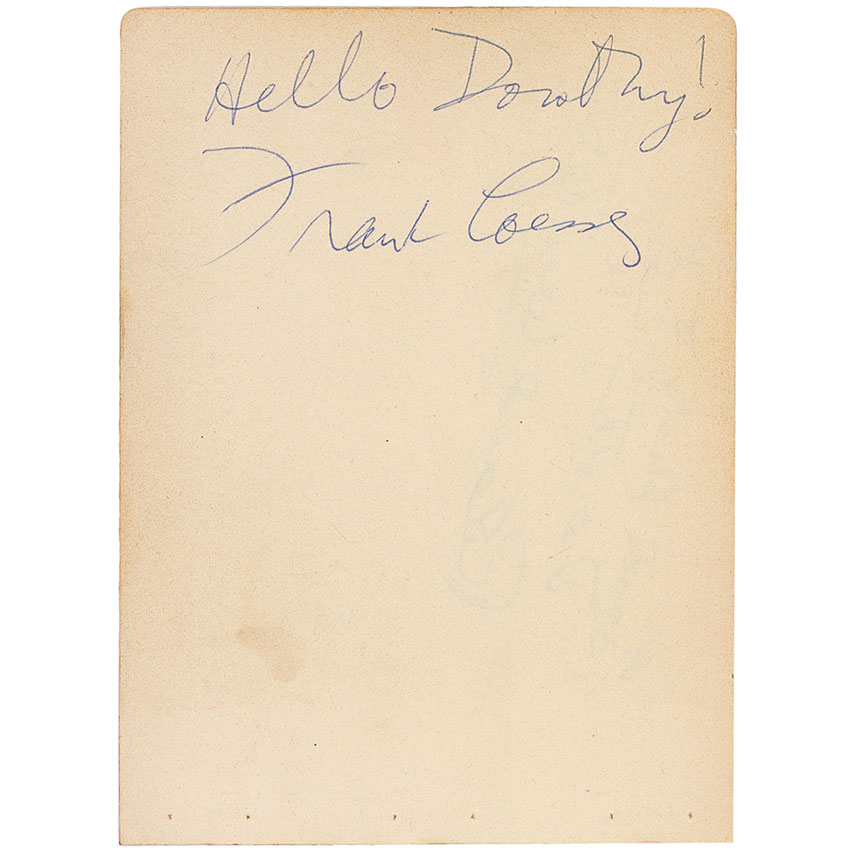 Hello Dorothy!
Frank Loesser